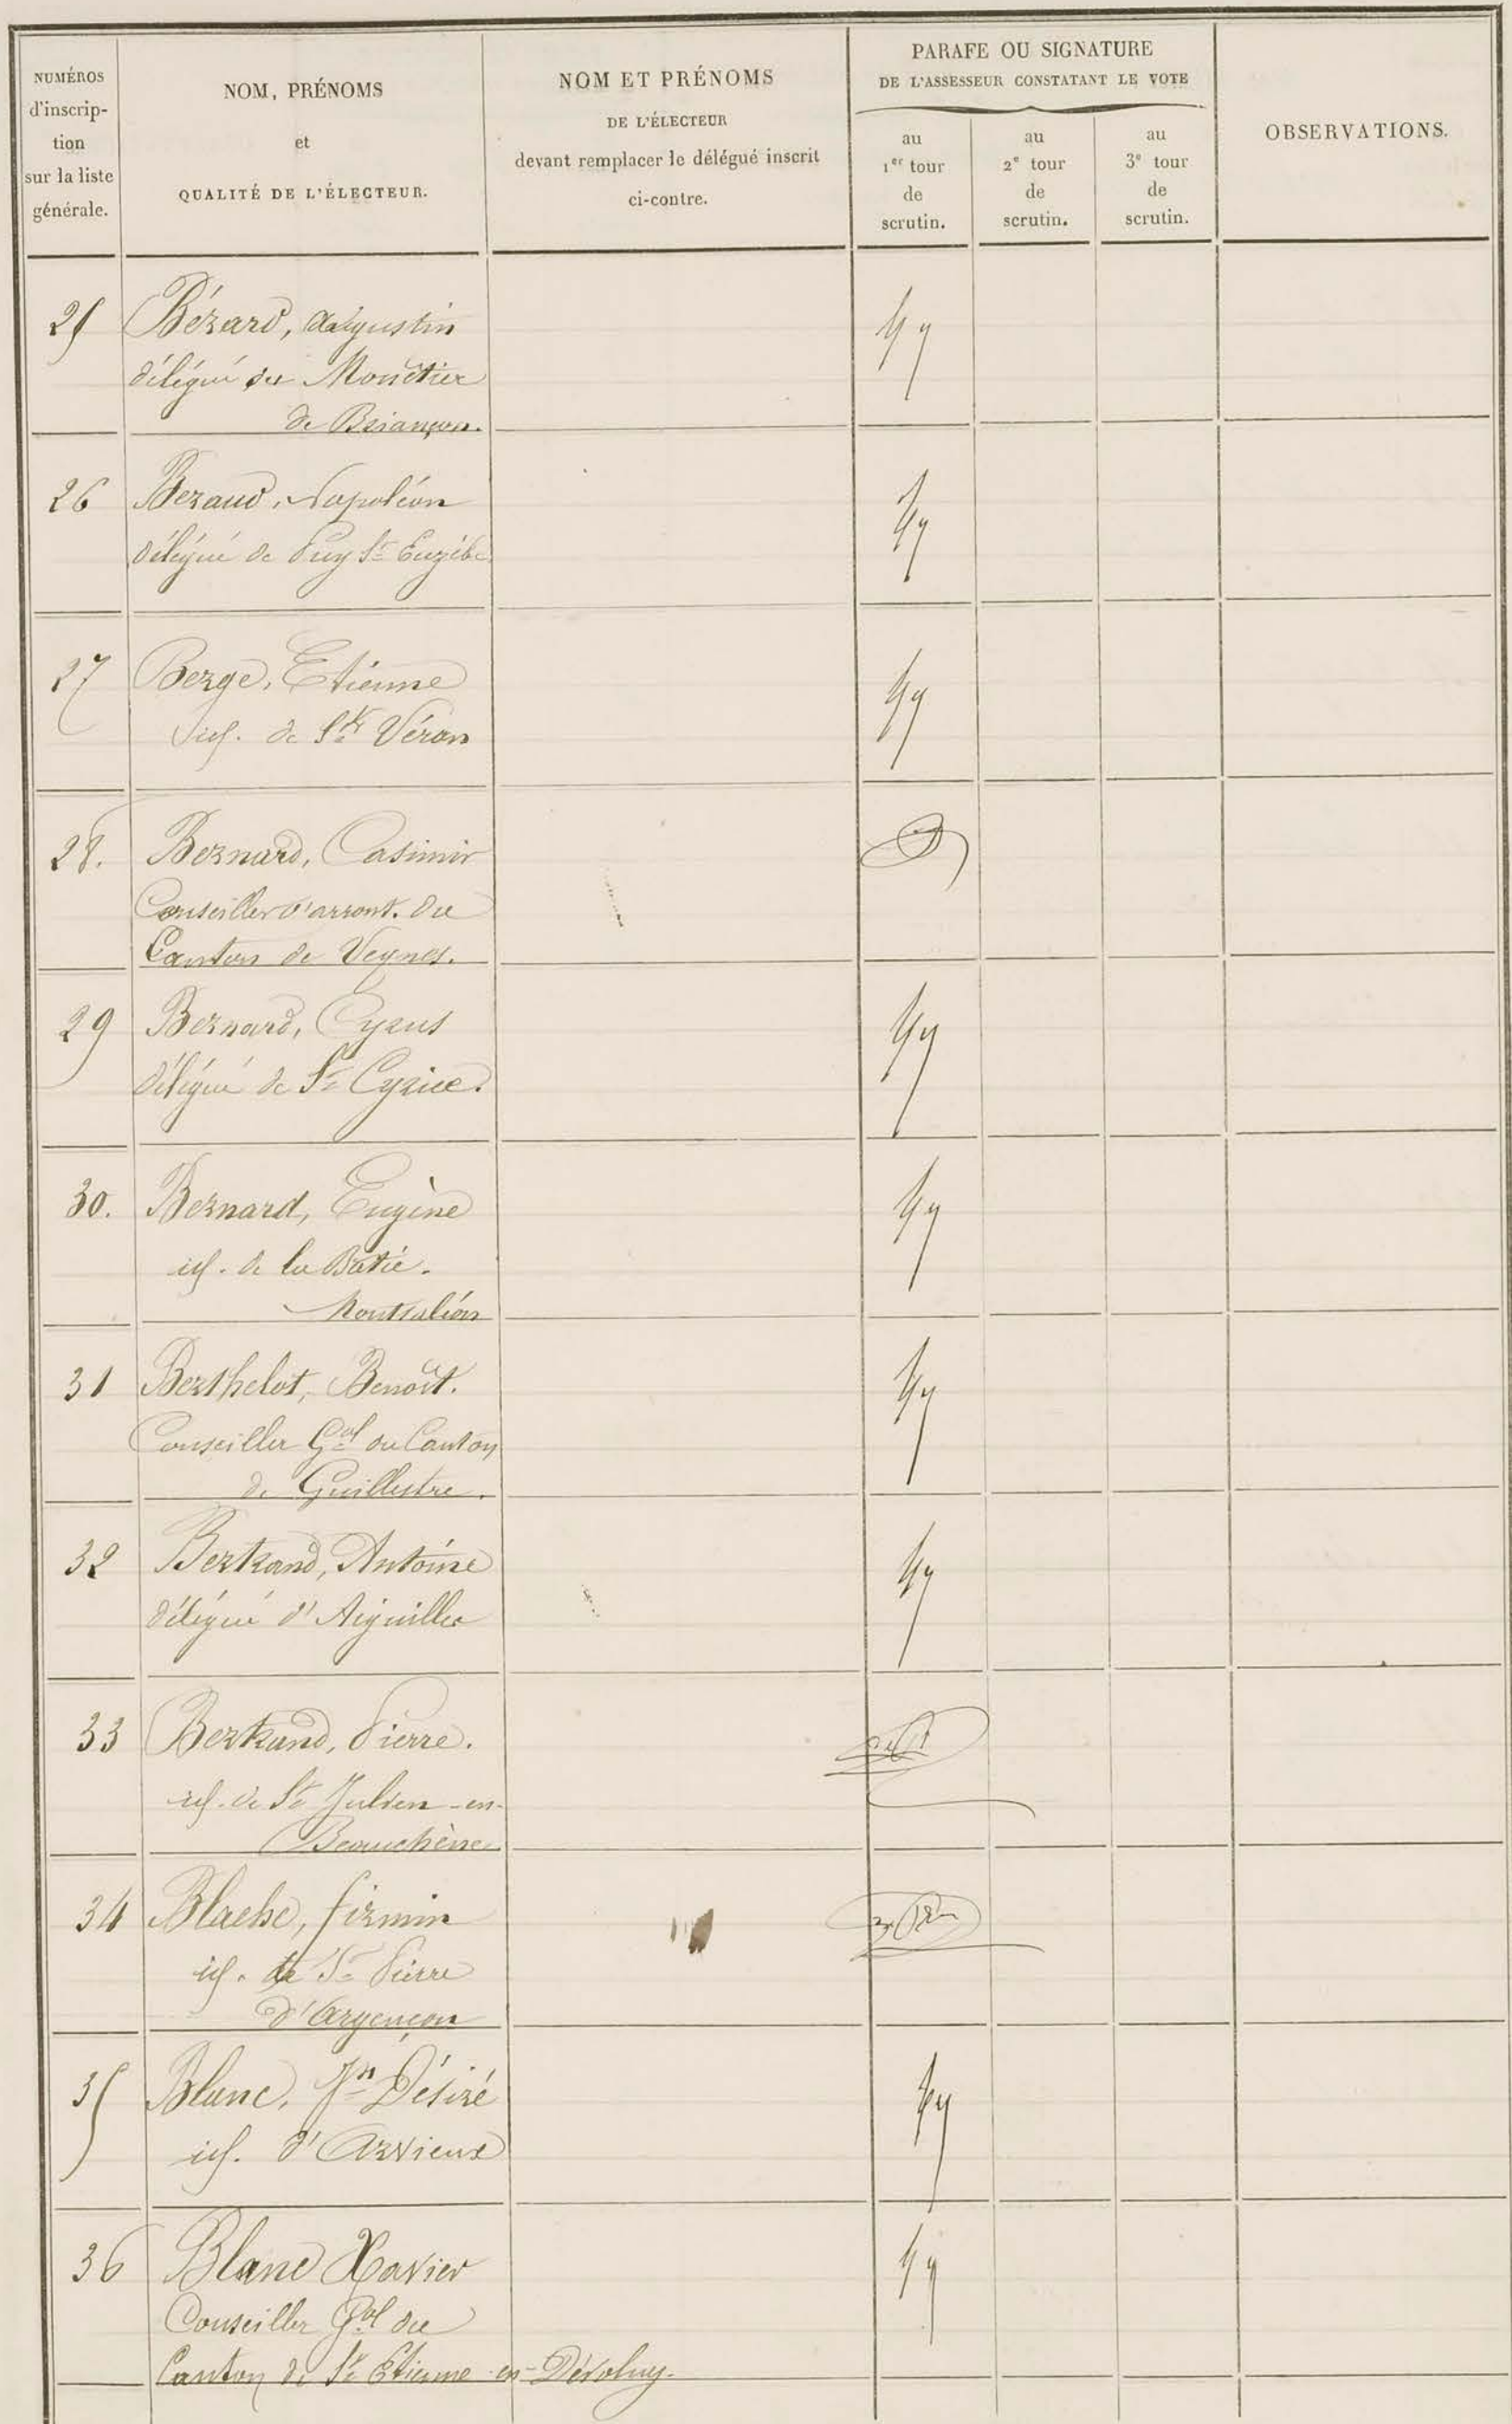 NUMÉROS
d'inscrip-
tion
sur la liste
générale.
NOM, PRÉNOMS
et
QUALITÉ DE L'ÉLECTEUR.
NOM ET PRÉNOMS
DE L'ÉLECTEUR
devant remplacer le délégué inscrit
ci-contre.
PARAFE OU SIGNATURE
DE L'ASSESSEUR CONSTATANT LE VOTE
au
1er tour
de
scrutin.
au
2e tour
de
scrutin.
au
3e tour
de
scrutin.
OBSERVATIONS.
25 Bérard, Augustin
délégué du Monêtier
de Briançon.
26 Beraud, Napoléon
délégué de Puy St Euzèbe
27 Berge, Etienne
de St Véran
28. Bernard, Casimir
Conseiller d'arront. du
Canton de Veynes.
29 Bernard, Cyrus
délégué de St Cyrice.
30. Bernard, Eugène
id. de la Batie-
Montsaléon
31 Berthelot, Benoît.
Conseiller Gal du Canton
de Guillestre.
32 Bertrand, Antoine
délégué d'Aiguilles
33 Bertrand, Pierre.
id. de St Julien-en-
Beauchêne
34 Blache, firmin
id. de St Pierre
d'Argençon
35 Blanc, Jn Désiré
id. d'Arvieux
36 Blanc Xavier
Conseiller Gal du
Canton de St Etienne en-Dévoluy.